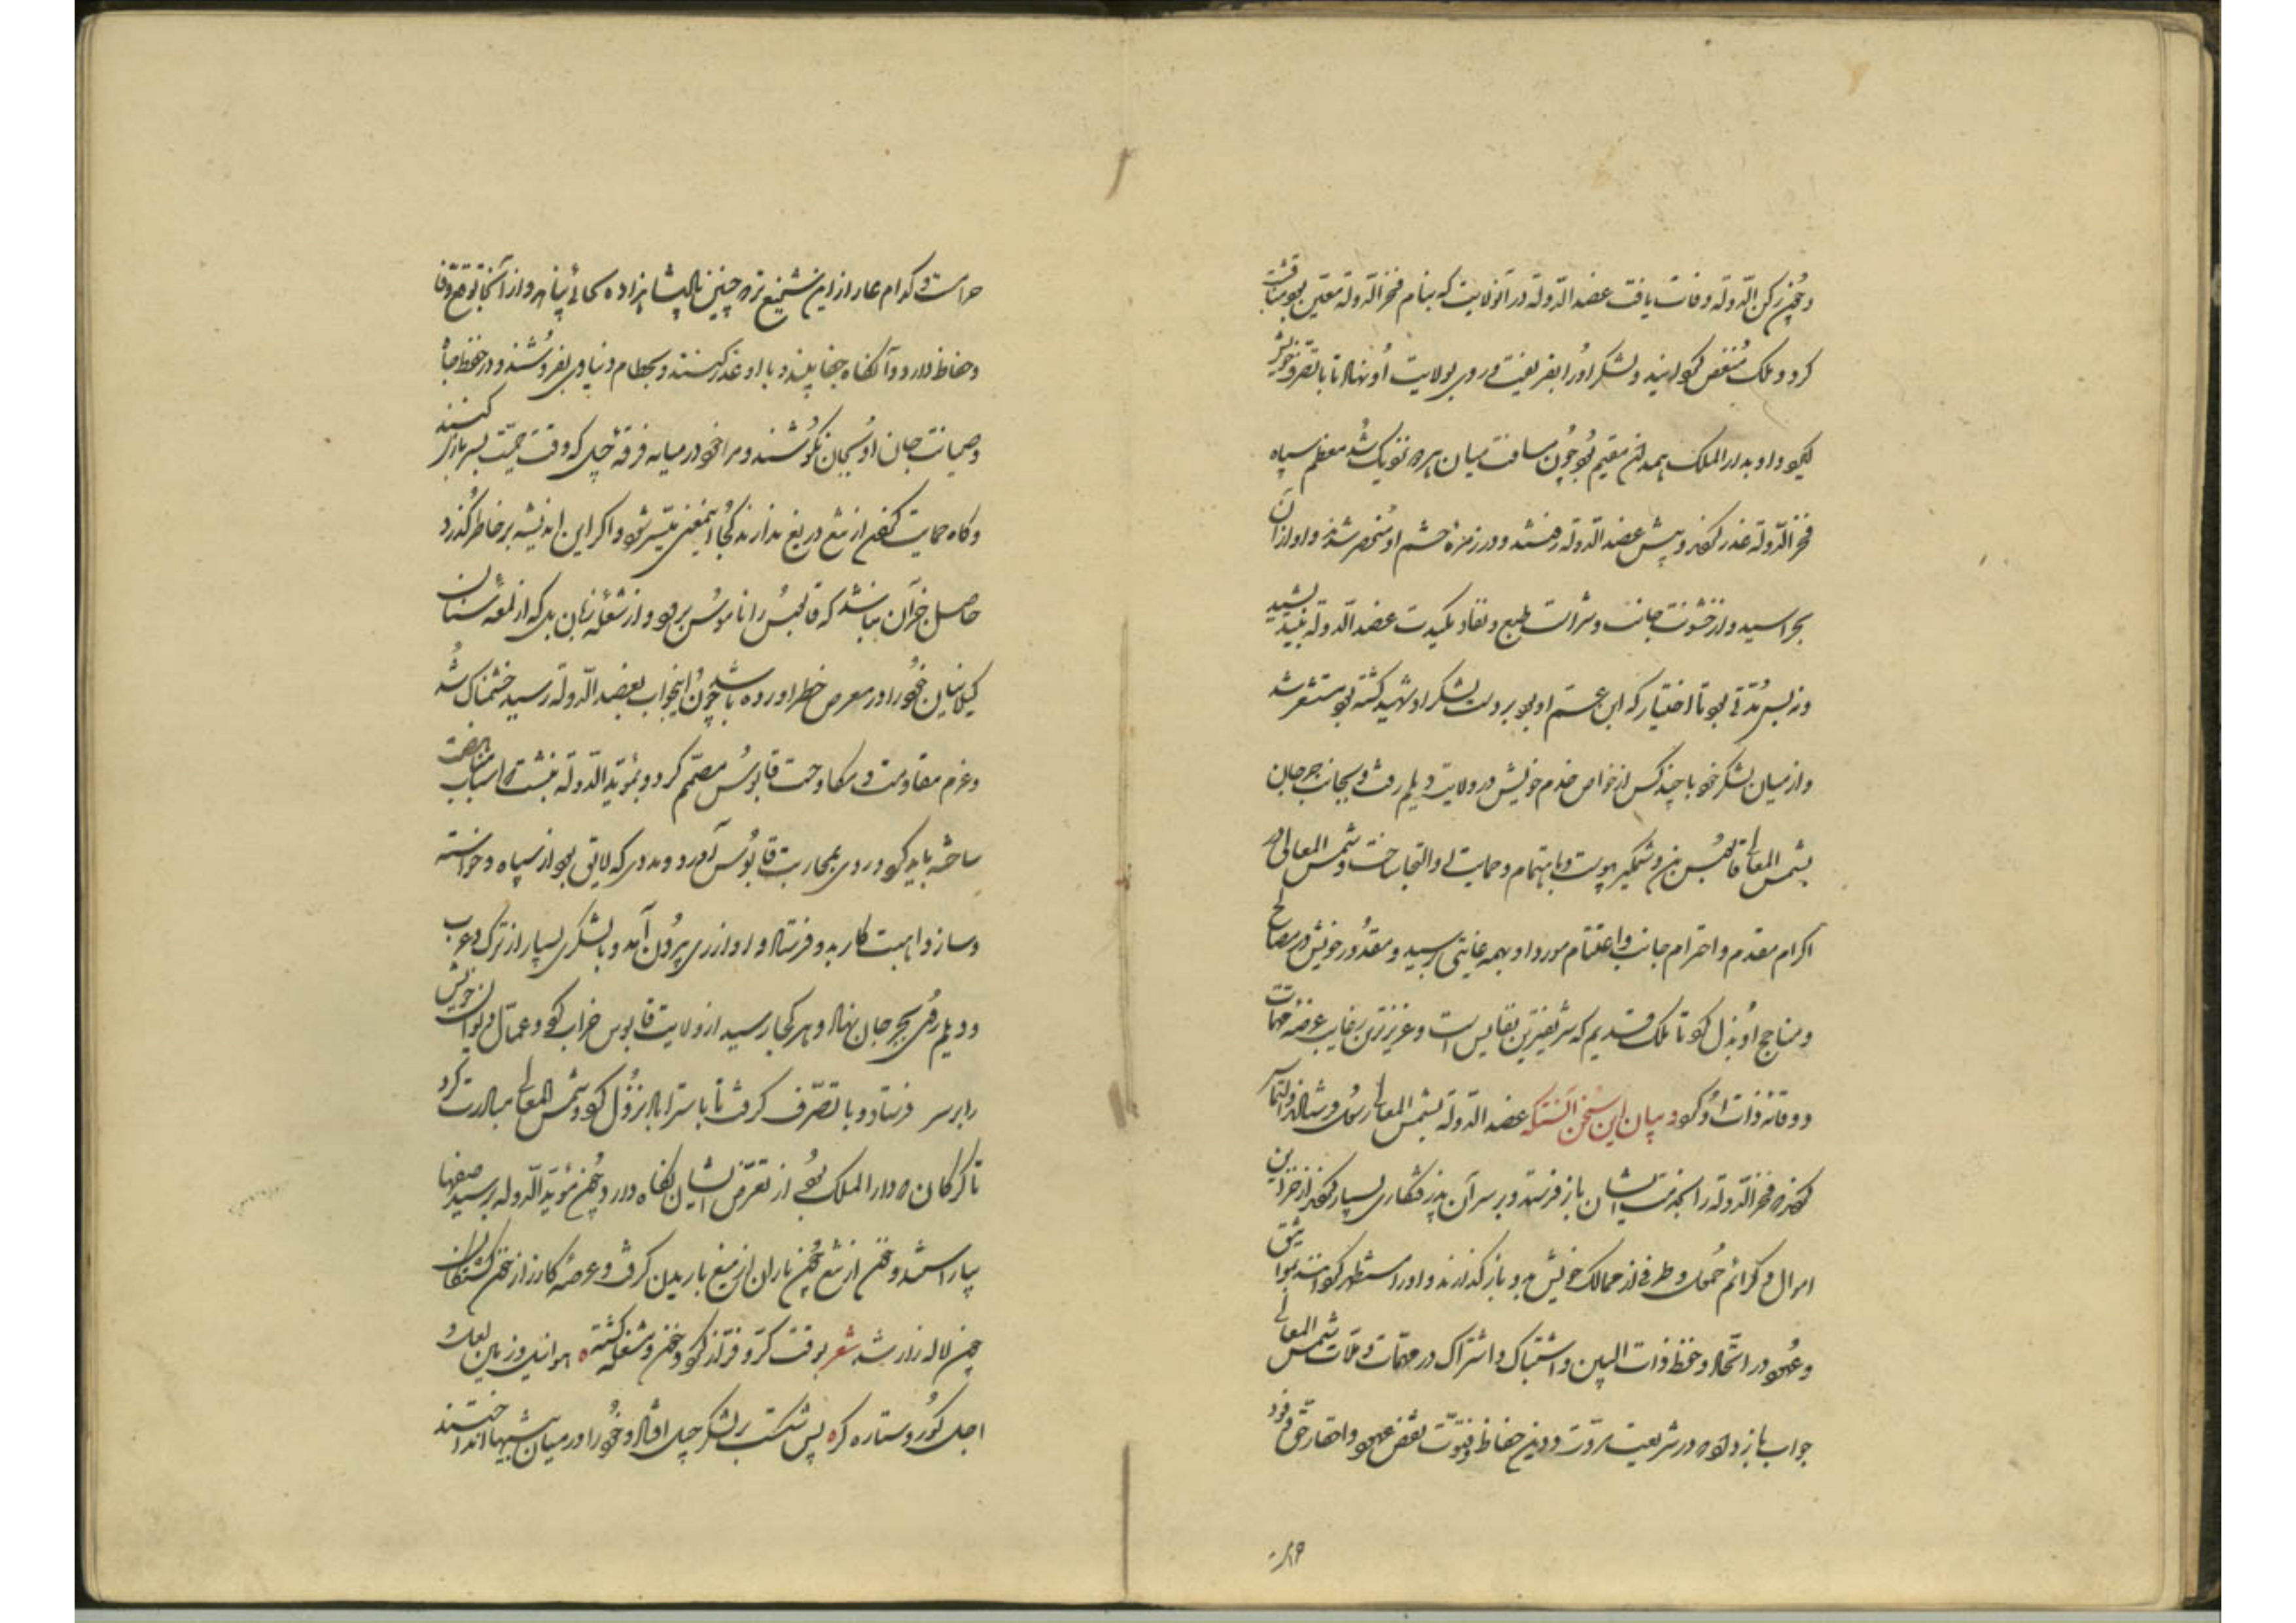 و چون رکن الدوله وفات یافت عضد الدوله در آن ولایت که بنام فخر الدوله معین بود مناقشت
کرد و ملک منغص گردانید و لشکر او را بفریفت و روی بولایت او نهاد تا با تصرف خویش
گیرد و او بدار الملک همدان مقیم بود چون مسافت میان هر دو نزدیک شد معظم سپاه
فخر الدوله غدر کردند و پیش عضد الدوله رفتند و در زمره حشم او منحصر شدند و او از آن
بهراسید و از خشونت جانب و شراست طبع و نفاد مکیدت عضد الدوله بیندیشید
و از میان لشکر خود با چند کس از خواص خدم خویش در ولایت دیلم رفت و بجانب جرجان
بشمس المعالی قابوس بن وشمگیر پیوست و باهتمام و حمایت او التجا ساخت و شمس المعالی در
اکرام مقدم و احترام جانب و اغتنام مورد او بهمه غایتی برسید و مقدور خویش در مصالح
و مناجح او بذل کرد تا ملک قدیم که شریفترین نفایس است و عزیزترین رغایب عرضه مهمات
و وقایه ذات او کرد و بیان این سخن آنستکه عضد الدوله بشمس المعالی رسول فرستاد و التماس
کردند که فخر الدوله را بخدمت ایشان باز فرستد و بر سر آن پذرفتگاری بسیار کردند از خزاین
اموال و کرائم حمول و طرفی از ممالک خویش بدو باز گذارند و او را مستظهر گردانند بمواثیق
و عهود در اتحاد و حفظ ذات البین و اشتباک و اشتراک در مهمات و ملمات شمس المعالی
جواب باز داد که در شریعت مروت و دین حفاظ و فتوت نقض عهود و اخفار حق وفود
حرام است و کدام عار ازین شنیع تر که چنین پادشاهزاده بجائی پناهد و از آنجا توقع وفا
و حفاظ دارد و آنگاه جفا بیند و با او غدر کنند و بحطام دنیاوی بفروشند و در حفظ جاه
و صیانت جان او بجان نکوشند و مرا خود در میانه فرقه جیل که وقت حمیت بسر بازی کنند
و گاه حمایت کفن از تیغ دریغ ندارند کجا این معنی میسر شود و اگر این اندیشه بر خاطر گذرد
حاصل جز آن نباشد که قابوس را ناموس برود و از شعله زبان بل که از لمعه سنان
گیلانیان خود را در معرض خطر آورده باشد چون این جواب بعضد الدوله رسید خشمناک شد
و عزم مقاومت و مکاوحت قابوس مصمم کرد و بمؤید الدوله نبشت که اسباب مناهضت
ساخته باید کرد و روی بمحاربت قابوس آورد و مددی که لایق بود از سپاه و خواسته
و ساز و اهبت کار بدو فرستاد و او از ری بیرون آمد و با لشکری بسیار از ترک و عرب
و دیلم روی بجرجان نهاد و هر کجا رسید از ولایت قابوس خراب کرد و عمال و نواب خویش
را بر سر فرستاد و با تصرف گرفت تا باستراباد نزول کرد و شمس المعالی مبادرت کرد
تا گرگان که دار الملک بود از تعرض ایشان نگاه دارد و چون مؤید الدوله برسید صفها
بیاراستند و خون از تیغ چون باران از میغ باریدن گرفت و عرصه کارزار از خون کشتگان
چون لاله زار شد شعر بوقت کر و فر از گرد و خون و شعله گشته هوا نیل و زمین لعل و
اجل کور و ستاره کر پس شکست بر لشکر جیل افتاد و خود را در میان بیشها انداختند